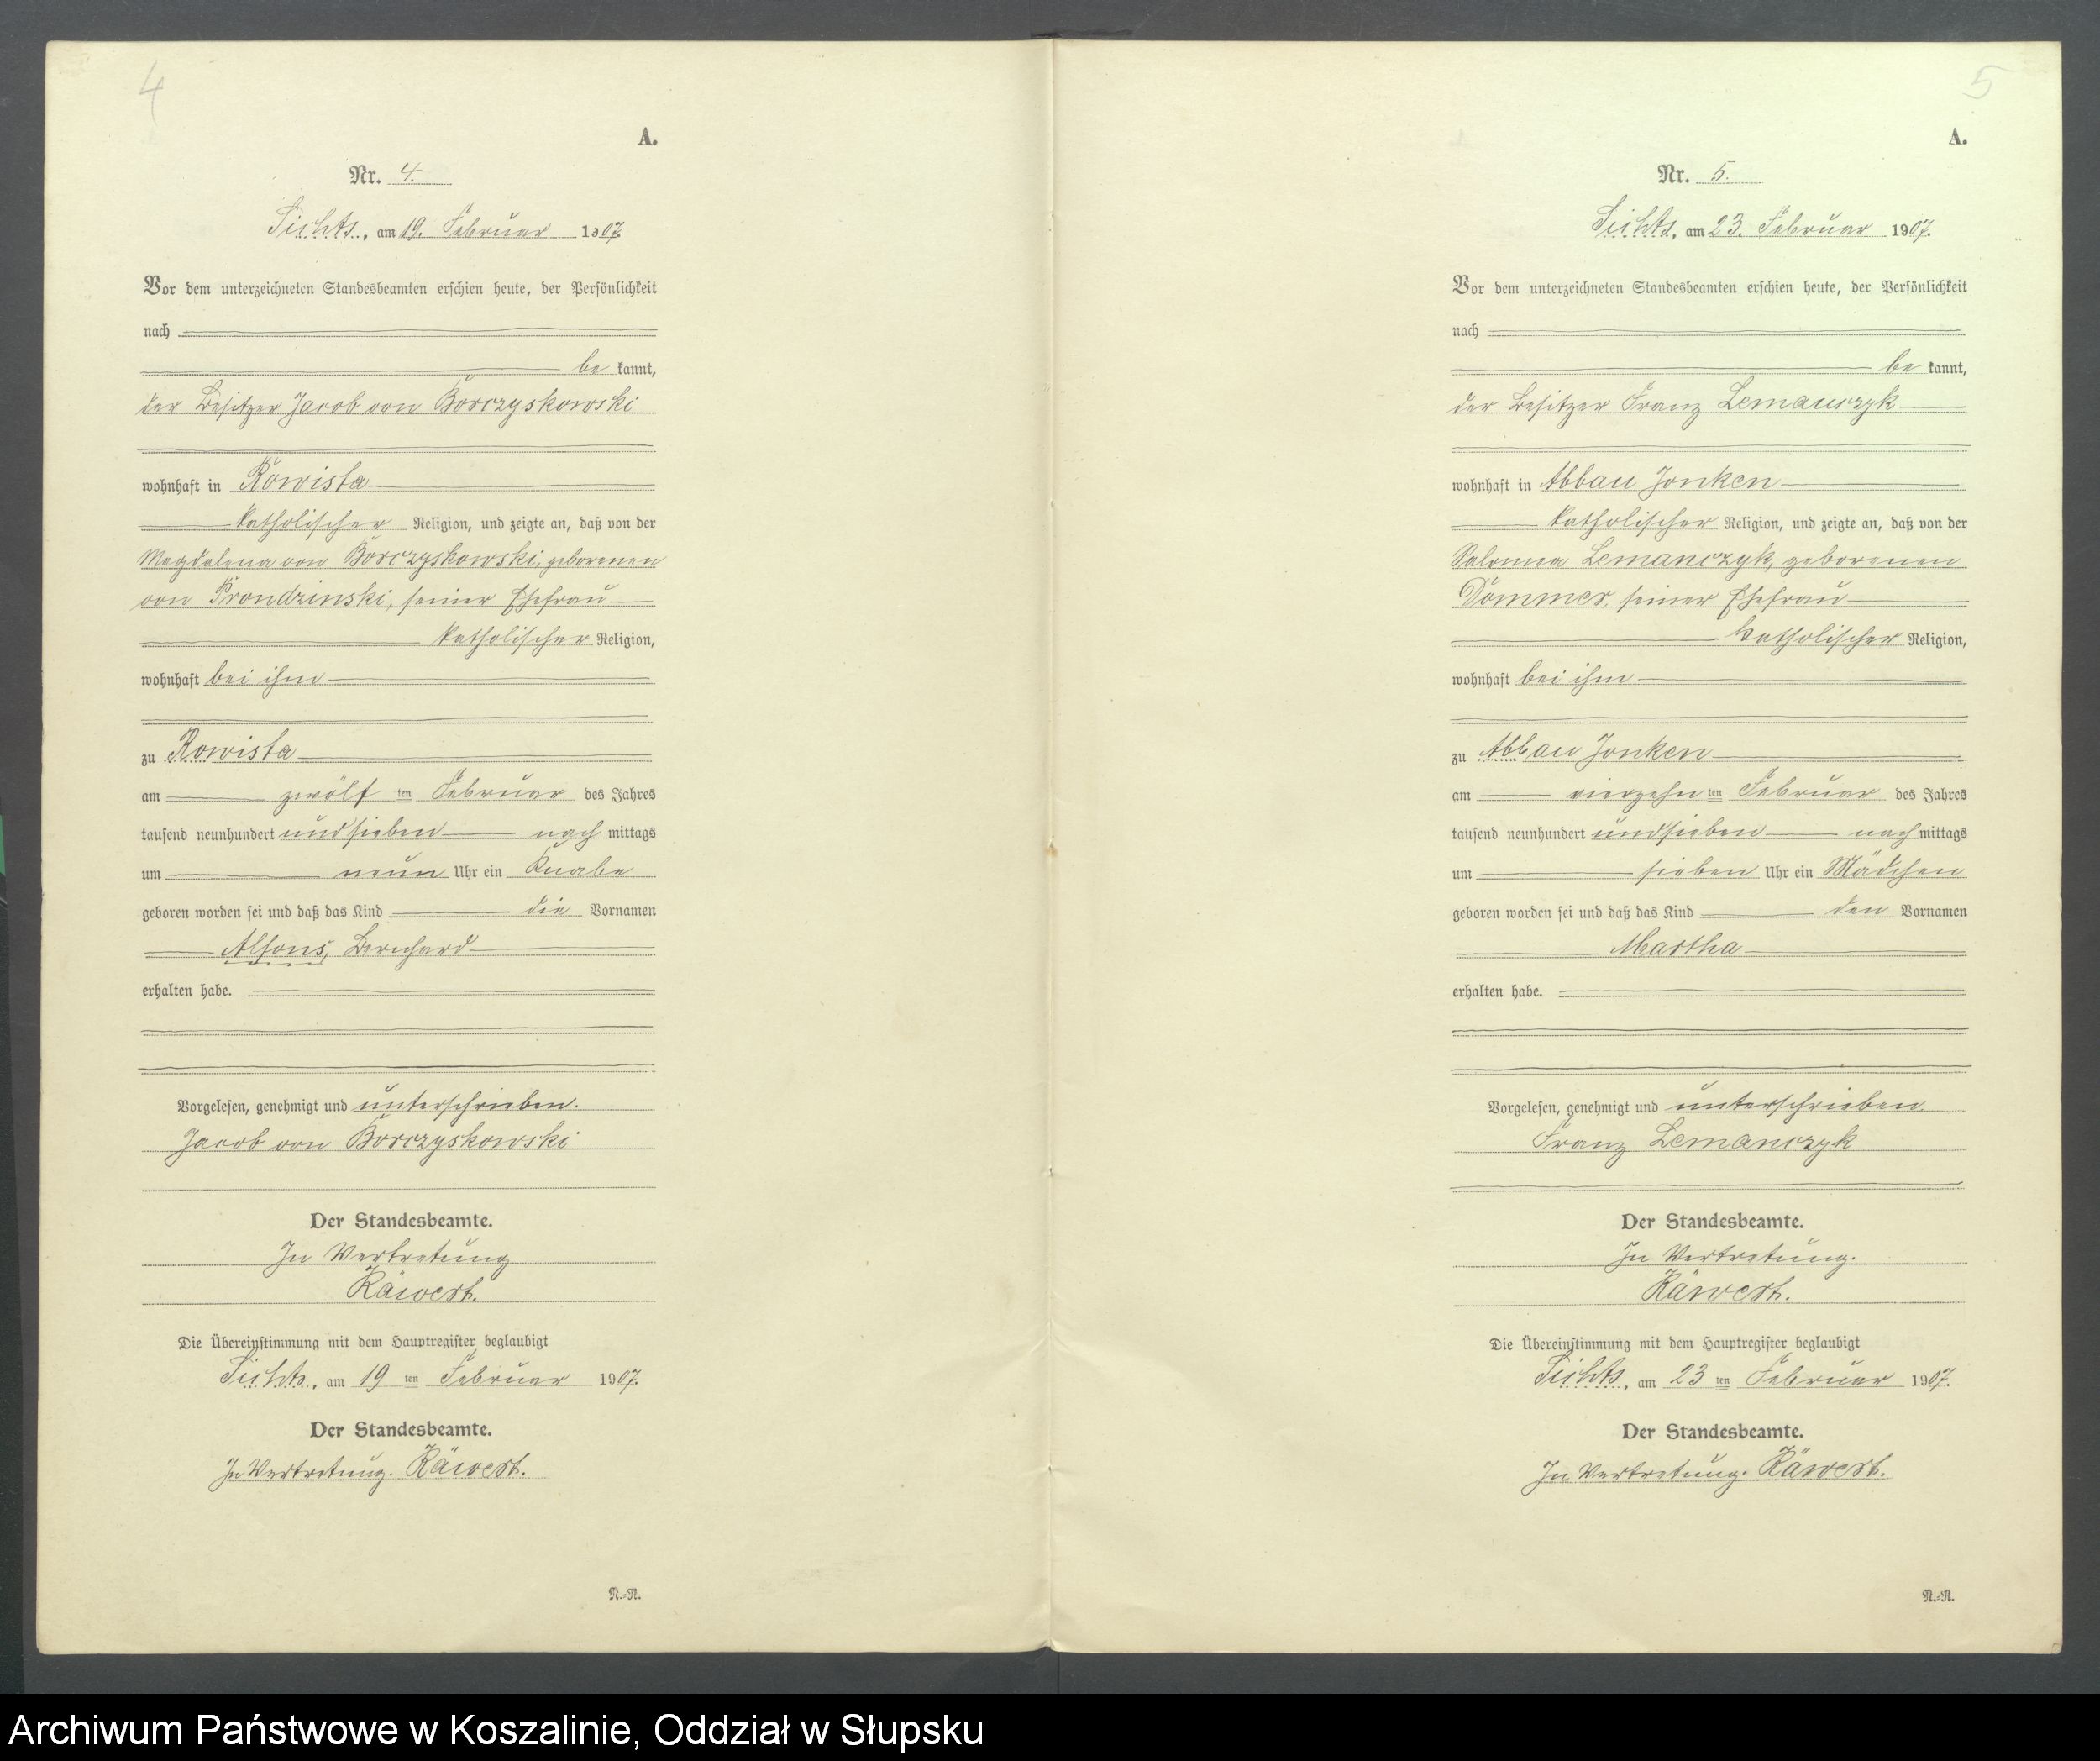 4
A.
Nr. 4.
Sichts, am 19. Februar 1907.
Vor dem unterzeichneten Standesbeamten erschien heute, der Persönlichkeit
nach
be kannt,
der Besitzer Jacob von Borczyskowski
wohnhaft in Rowista
katholischer Religion, und zeigte an, daß von der
Magdalena von Borczyskowski, geborenen
von Prondzinski, seiner Ehefrau
katholischer Religion,
wohnhaft bei ihm
zu Rowista
am zwölf ten Februar des Jahres
tausend neunhundert und sieben nach mittags
um neun Uhr ein Knabe
geboren worden sei und daß das Kind die Vornamen
Alfons, Bernhard
erhalten habe.
Vorgelesen, genehmigt und unterschrieben.
Jacob von Borczyskowski
Der Standesbeamte.
In Vertretung
Räwert.
Die Übereinstimmung mit dem Hauptregister beglaubigt
Sichts, am 19 ten Februar 1907.
Der Standesbeamte.
In Vertretung. Räwert.
N.=N.
5
A.
Nr. 5.
Sichts, am 23. Februar 1907.
Vor dem unterzeichneten Standesbeamten erschien heute, der Persönlichkeit
nach
be kannt,
der Besitzer Franz Lemanczyk
wohnhaft in Abbau Jonken
katholischer Religion, und zeigte an, daß von der
Salomea Lemanczyk, geborenen
Dommer, seiner Ehefrau
katholischer Religion,
wohnhaft bei ihm
zu Abbau Jonken
am vierzehn ten Februar des Jahres
tausend neunhundert und sieben nach mittags
um sieben Uhr ein Mädchen
geboren worden sei und daß das Kind den Vornamen
Martha
erhalten habe.
Vorgelesen, genehmigt und unterschrieben
Franz Lemanczyk
Der Standesbeamte.
In Vertretung.
Räwert.
Die Übereinstimmung mit dem Hauptregister beglaubigt
Sichts, am 23 ten Februar 1907.
Der Standesbeamte.
In Vertretung. Räwert.
N.=N.
Archiwum Państwowe w Koszalinie, Oddział w Słupsku